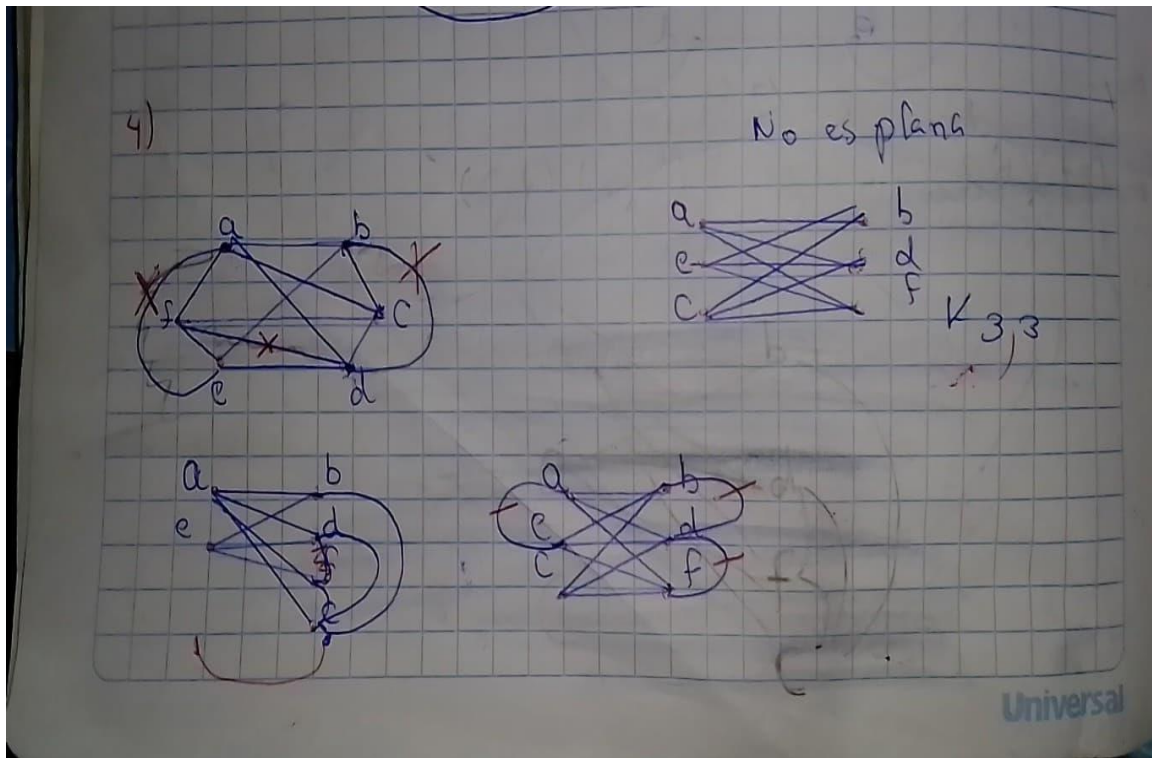 4)
No es plana
a b
f c
e d
a b
e d
c f
K 3,3
a b
e d
f
c
a b
e d
c f
Universal